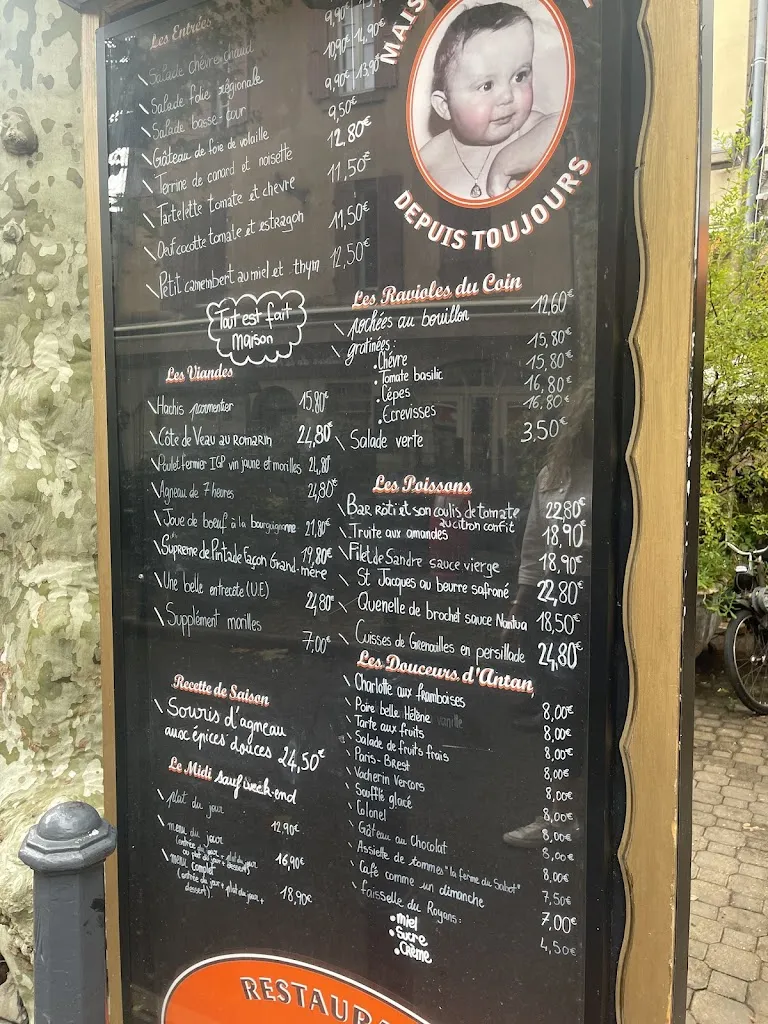 Les Entrées
Salade chèvre chaud 9,90€ 14,90€
Salade folie régionale 10,90€ 14,90€
Salade basse-cour 9,90€ 13,90€
Gâteau de foie de volaille 9,50€
Terrine de canard et noisette 12,80€
Tartelette tomate et chèvre 11,50€
Oeuf cocotte tomate et estragon 11,50€
Petit camembert au miel et thym 12,50€
Tout est fait
maison
MAIS
DEPUIS TOUJOURS
Les Ravioles du Coin
pochées au bouillon 12,60€
gratinées:
• Chèvre 15,80€
• Tomate basilic 15,80€
• Cépes 16,80€
• Ecrevisses 16,80€
Salade verte 3,50€
Les Viandes
Hachis parmentier 15,80€
Côte de Veau au Romarin 24,80€
Poulet fermier IGP vin jaune et morilles 24,80€
Agneau de 7 heures 24,80€
Joue de boeuf à la bourguignonne 21,80€
Suprême de Pintade Façon Grand-mère 19,80€
Une belle entrecôte (U.E) 24,80€
Supplément morilles 7,00€
Les Poissons
Bar rôti et son coulis de tomate 22,80€
au citron confit
Truite aux amandes 18,90€
Filet de Sandre sauce vierge 18,90€
St Jacques au beurre safrané 22,80€
Quenelle de brochet sauce Nantua 18,50€
Cuisses de Grenouilles en persillade 24,80€
Recette de Saison
Souris d'agneau
aux épices douces 24,50€
Le Midi sauf week-end
plat du jour 12,90€
menu du jour 16,90€
(entrée du jour + plat du jour
ou plat du jour + dessert)
menu complet 18,90€
(entrée du jour + plat du jour +
dessert).
Les Douceurs d'Antan
Charlotte aux framboises 8,00€
Poire belle Hélène vanille 8,00€
Tarte aux fruits 8,00€
Salade de fruits frais 8,00€
Paris-Brest 8,00€
Vacherin Vercors 8,00€
Soufflé glacé 8,00€
Colonel 8,00€
Gâteau au Chocolat 8,00€
Assiette de tommes "la ferme du Sabot" 7,50€
Café comme un dimanche 7,00€
faisselle du Royans: 4,50€
• Miel
• Sucre
• Crème
RESTAURA